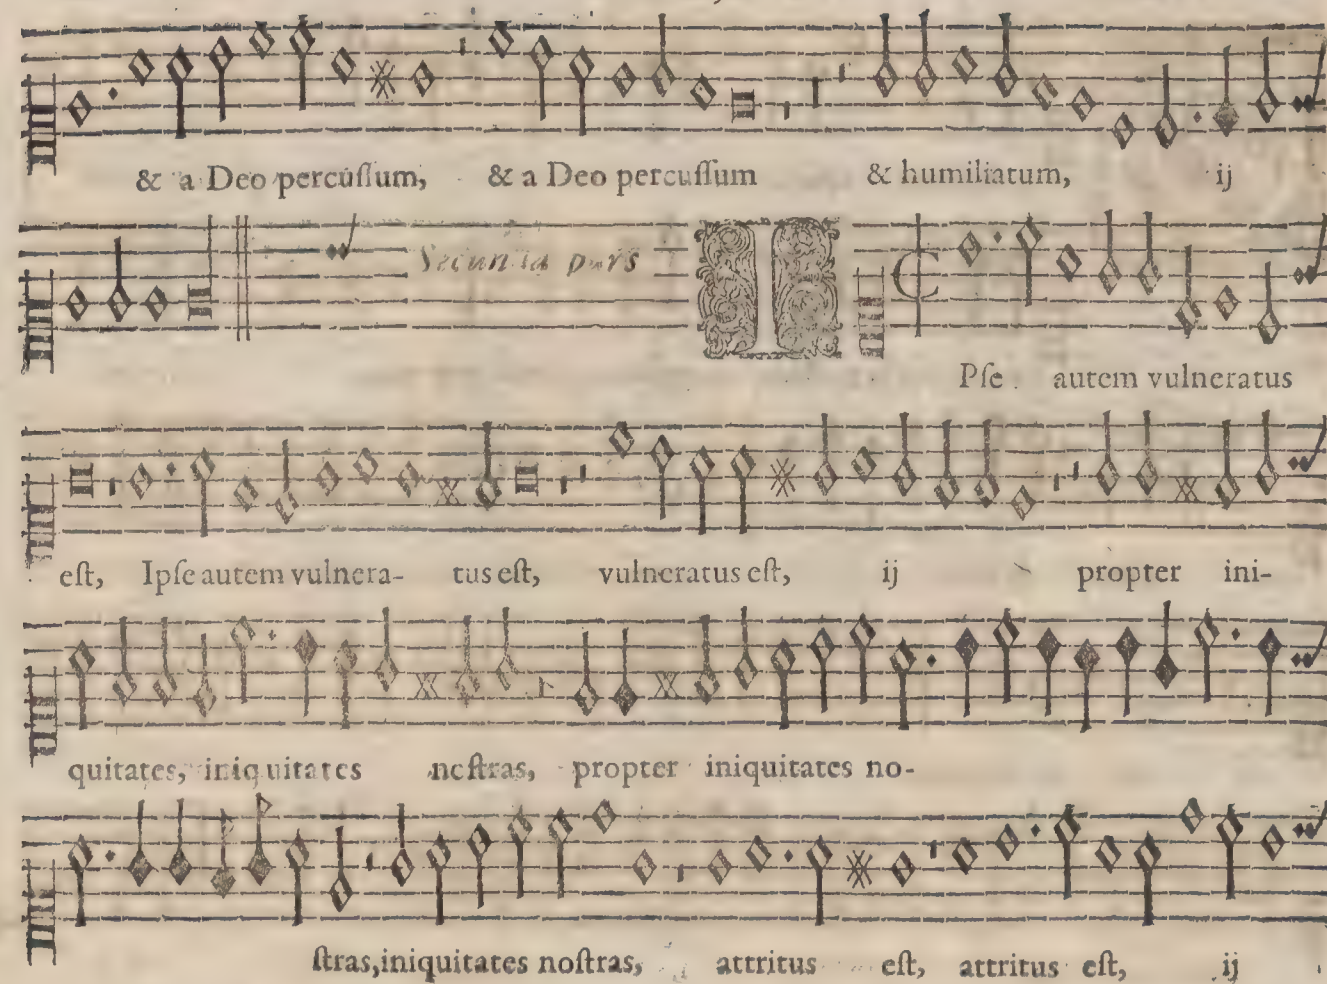 & a Deo percuſſum, & a Deo percuſſum & humiliatum, ij
Secunda pars
I Pſe autem vulneratus
eſt, Ipſe autem vulnera- tus eſt, vulneratus eſt, ij propter ini-
quitates, iniquitates noſtras, propter iniquitates no-
ſtras, iniquitates noſtras, attritus eſt, attritus eſt, ij